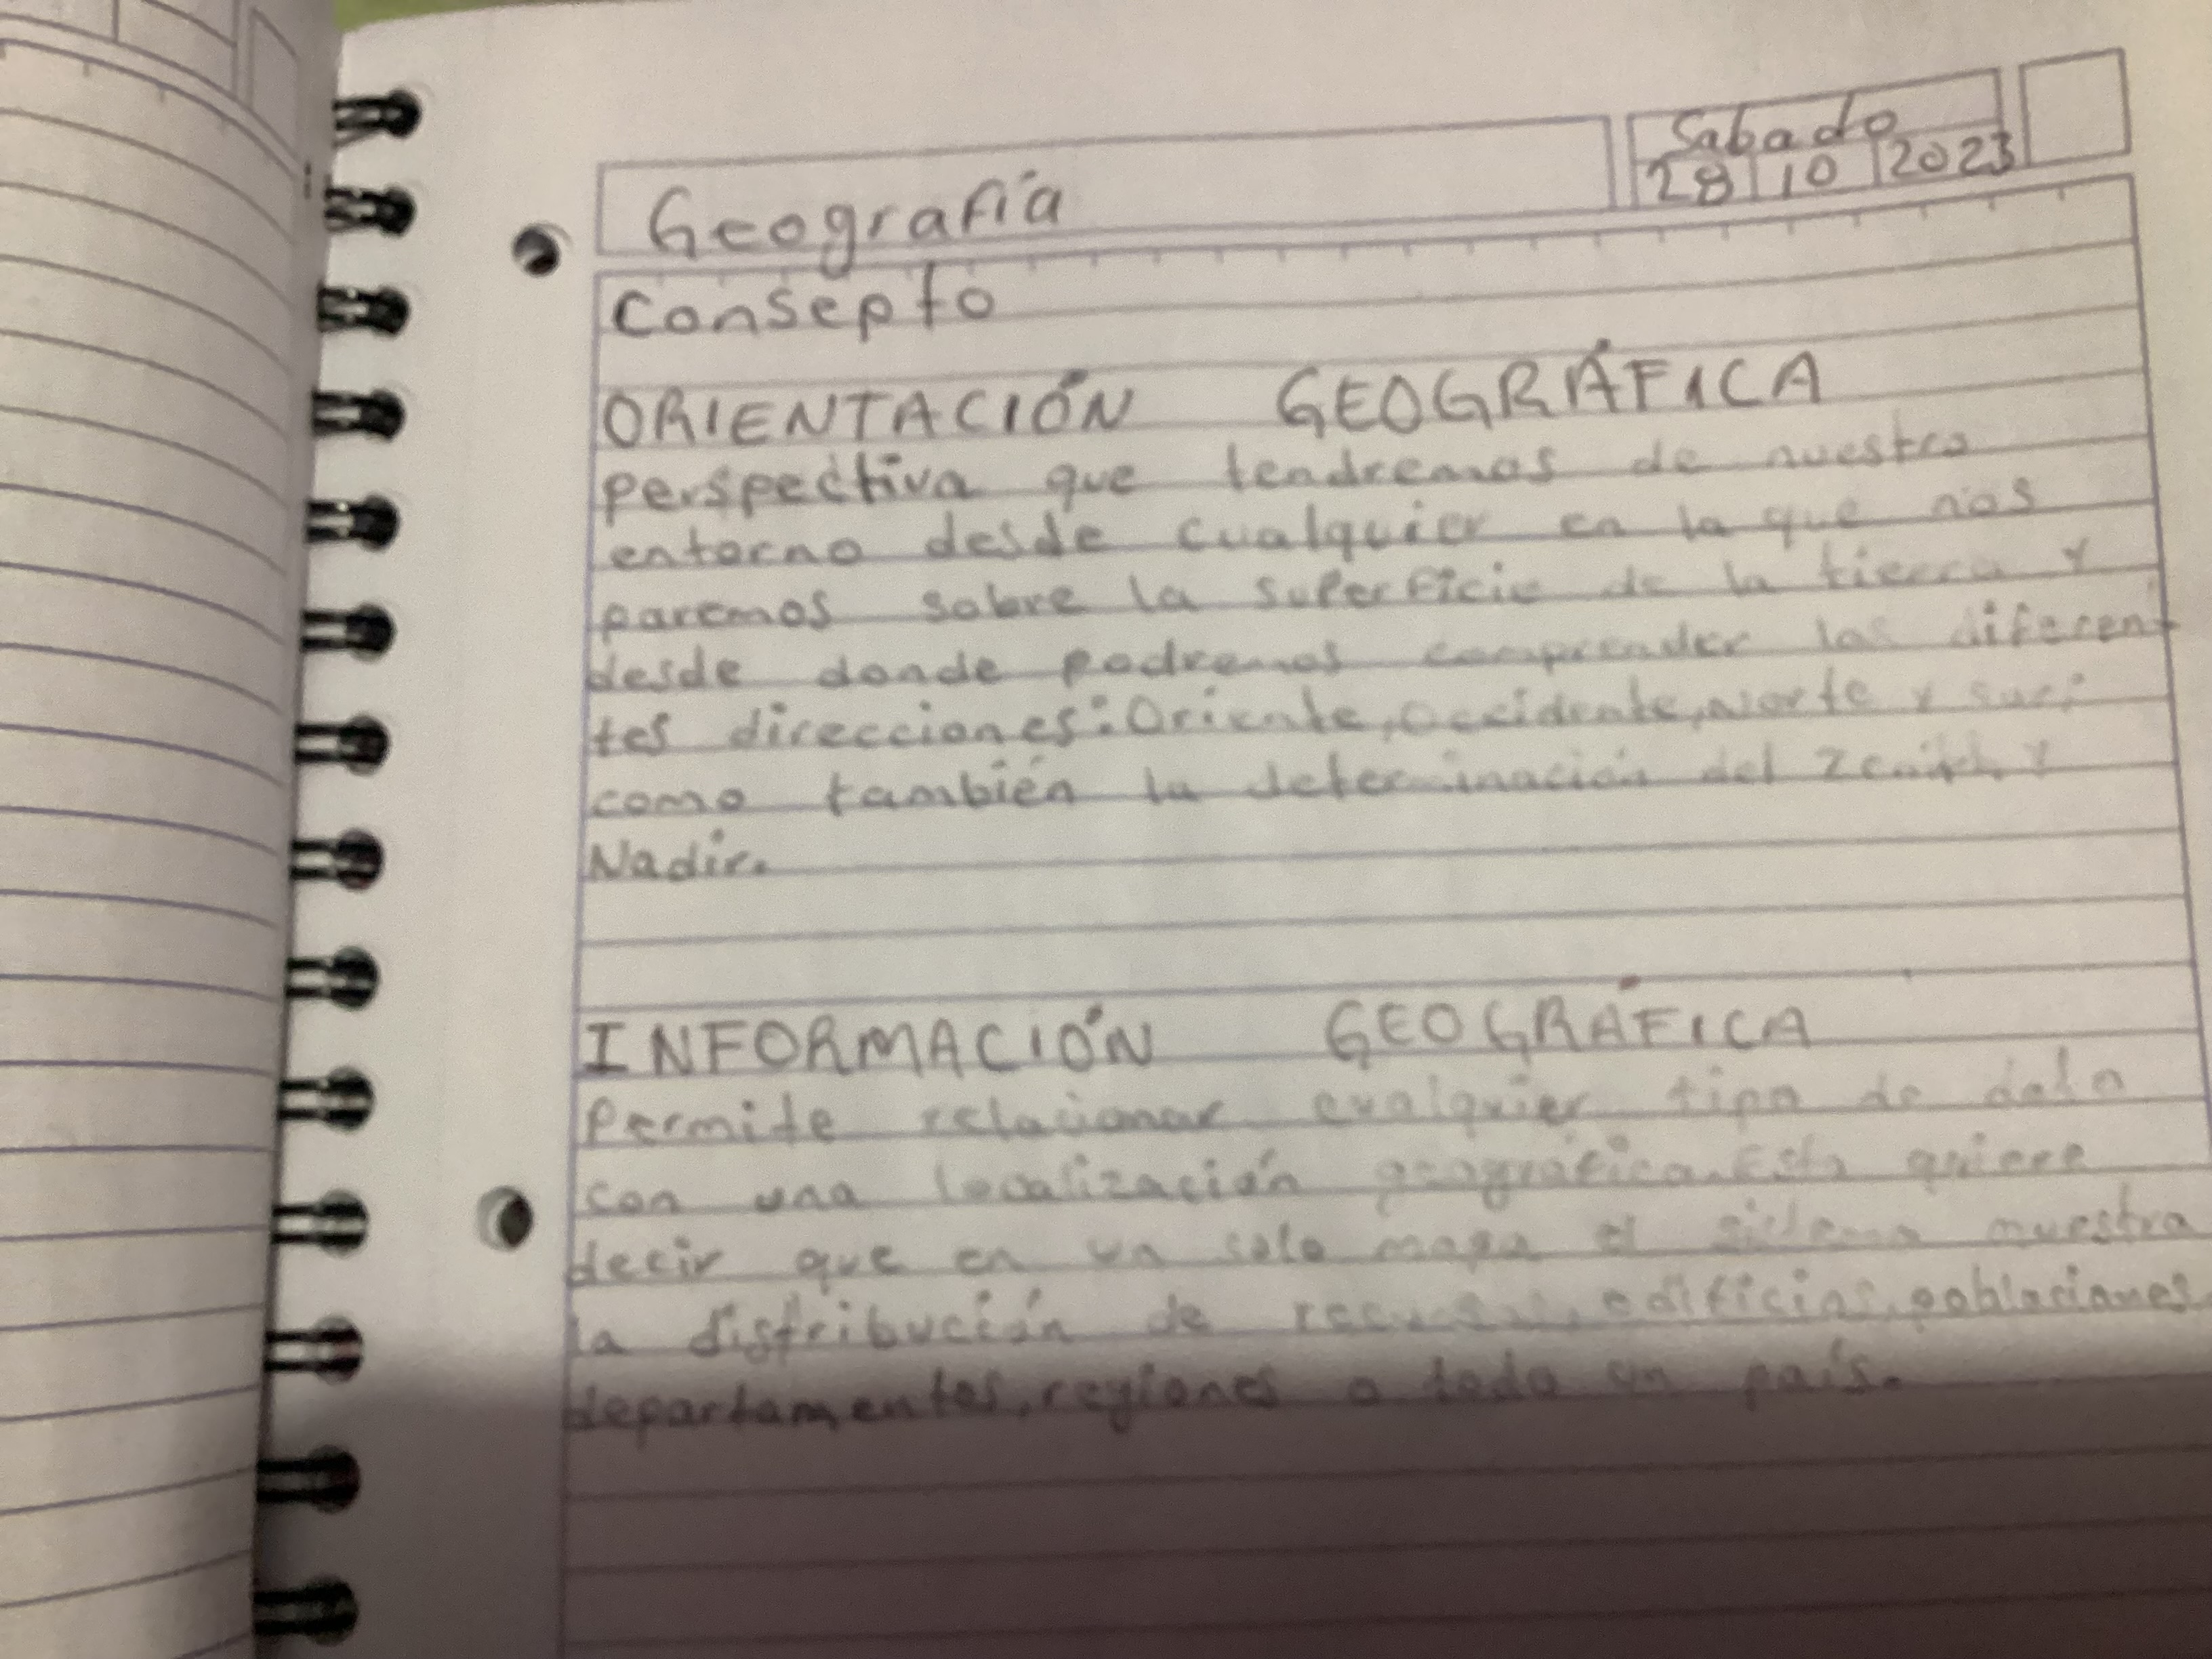 Sabado
28 10 2023
Geografía
Consepto
ORIENTACIÓN GEOGRÁFICA
perspectiva que tendremos de nuestro
entorno desde cualquier en la que nos
paremos sobre la superficie de la tierra y
desde donde podremos comprender las diferen-
tes direcciones: Oriente, Occidente, Norte y sur;
como también la determinación del Zenith y
Nadir.
INFORMACIÓN GEOGRÁFICA
Permite relacionar cualquier tipo de dato
con una localización geográfica. Esto quiere
decir que en un solo mapa el sistema muestra
la distribución de edificios, poblaciones,
departamentos, regiones o todo un país.